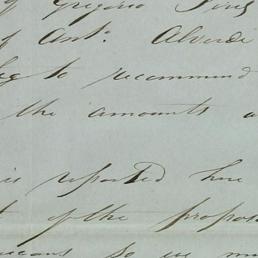 of Gregorio
of Anto. Alvord
beg to recommend
the amounts a
is reported here
of the propos
so we